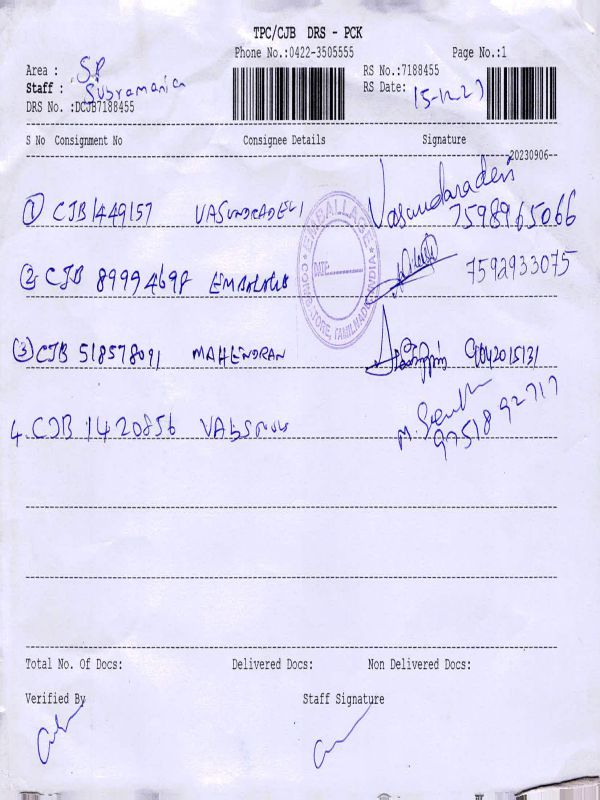 TPC/CJB DRS - PCK
Phone No.:0422-3505555 Page No.:1
Area : SP RS No.:7188455
Staff : Subramania RS Date: 15-12-23
DRS No. :DCJB7188455
S No Consignment No Consignee Details Signature
20230906
1 CJB 1449157 VASUNDRADEVI Vasundaradevi
7598965066
EMBALLAGE
COIMBATORE, TAMILNADU, INDIA
2 CJB 8999469 7592933075
3 CJB 518578091 MAHENDRAN 9042015131
4. CJB 1420856 M.
9751892717
Total No. Of Docs: Delivered Docs: Non Delivered Docs:
Verified By Staff Signature